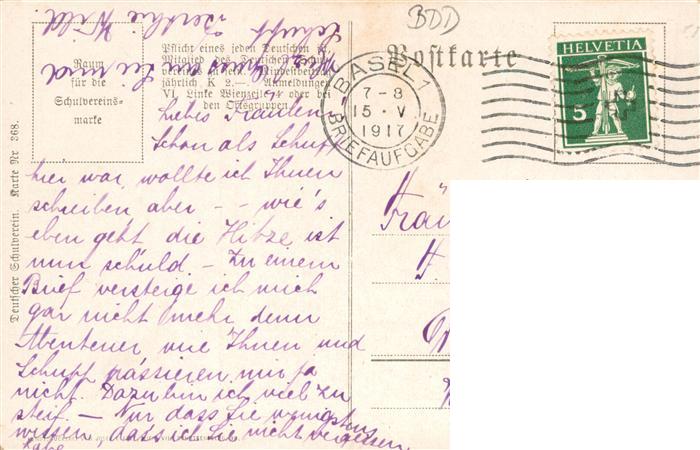 BDD
Postkarte
Raum
für die
Schulvereins-
marke
Pflicht eines jeden Deutschen ist
Mitglied des Deutschen Schul-
vereins zu sein. Mindestbeitrag
jährlich K 2.—. Anmeldungen
VI. Linke Wienzeile oder bei
den Ortsgruppen.
BASEL 1
7-8
15. V.
1917
BRIEFAUFGABE
HELVETIA
5
Deutscher Schulverein. Karte Nr 268.
Liebes Fräulein!
Schon als Schupf
hier war, wollte ich Ihnen
schreiben aber – – wie's
eben geht die Hitze ist
nun schuld. – Zu einem
Brief versteige ich mich
gar nicht mehr denn
Abenteuer wie Ihnen und
Schupf passieren mir ja
nicht. Dazu bin ich viel zu
steif. – Nur dass Sie wenigstens
wissen, dass ich Sie nicht vergessen
habe
Schupf
und
Wild
Fräu